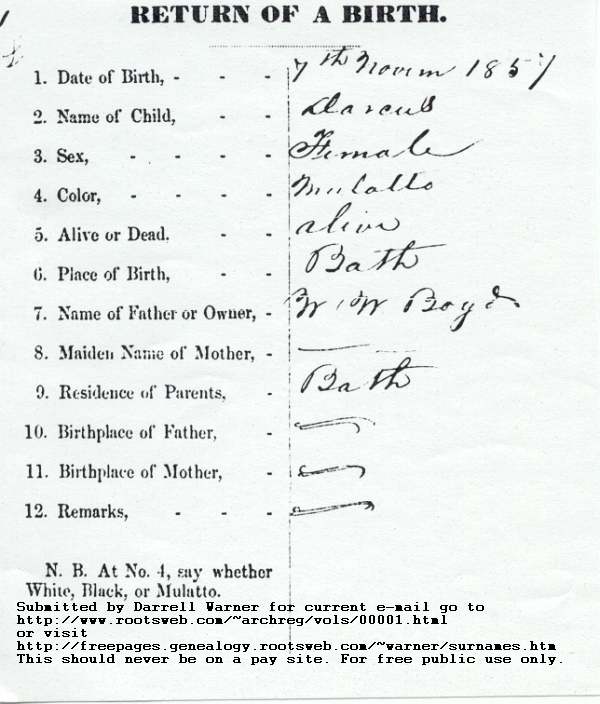 RETURN OF A BIRTH.
1. Date of Birth, - - - 7th Novem 1857
2. Name of Child, - - Darcus
3. Sex, - - - - Female
4. Color, - - - - Mulatto
5. Alive or Dead. - - alive
6. Place of Birth, - - Bath
7. Name of Father or Owner, - W. W Boyd
8. Maiden Name of Mother, - —
9. Residence of Parents, - Bath
10. Birthplace of Father, -
11. Birthplace of Mother, -
12. Remarks, - - -
N. B. At No. 4, say whether
White, Black, or Mulatto.
Submitted by Darrell Warner for current e-mail go to
http://www.rootsweb.com/~archreg/vols/00001.html
or visit
http://freepages.genealogy.rootsweb.com/~warner/surnames.htm
This should never be on a pay site. For free public use only.